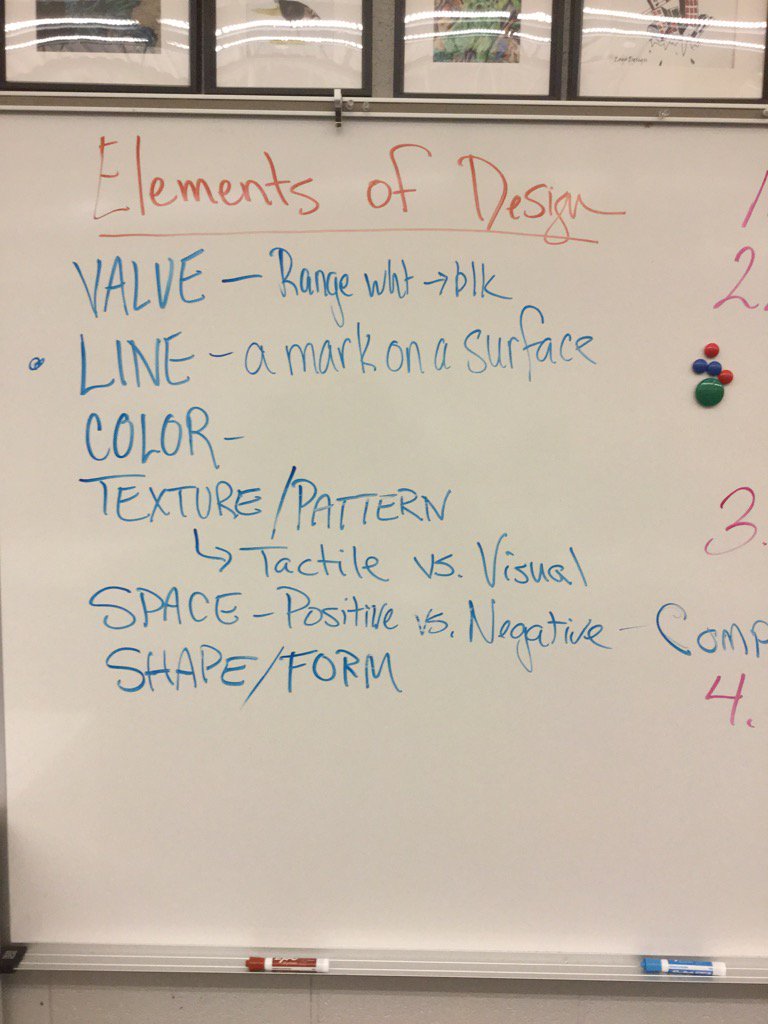 Elements of Design
VALUE – Range wht → blk
LINE – a mark on a surface
COLOR –
TEXTURE/PATTERN
↳ Tactile vs. Visual
SPACE – Positive vs. Negative – Comp
SHAPE/FORM
1.
2.
3.
4.